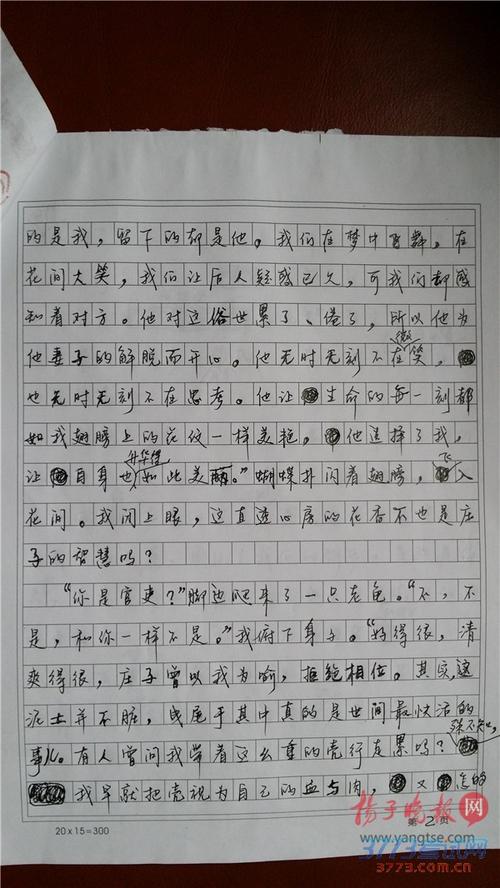 的是我，留下的却是他。我们在梦中飞舞，在
花间大笑，我们让后人疑惑已久，可我们却感
知着对方。他对这俗世累了、倦了，所以他为
他妻子的解脱而开心。他无时无刻不在微笑，
也无时无刻不在思考。他让生命的每一刻都
如我翅膀上的花纹一样美艳。他选择了我，
让自身也升华得如此美。”蝴蝶扑闪着翅膀，飞入
花间。我闭上眼，这直透心房的花香不也是庄
子的智慧吗？
“你是官吏？”脚边爬来了一只老龟。“不，不
是，和你一样不是。”我俯下身子。“好得很，清
爽得很，庄子曾以我为喻，拒绝相位。其实，这
泥土并不脏，曳尾于其中真的是世间最快活的
事儿。有人曾问我带着这么重的壳行走累吗？殊不知，
我早就把壳视为自己的血与肉，又怎的
20×15=300
第2页
扬子晚报网
www.yangtse.com
3773考试网
3773.com.cn